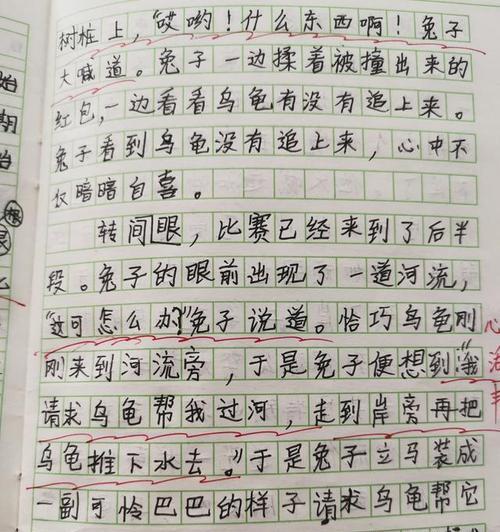 树桩上，“哎哟！什么东西啊！兔子
大喊道。兔子一边揉着被撞出来的
红包，一边看看乌龟有没有追上来。
兔子看到乌龟没有追上来，心中不
仅暗暗自喜。
转间眼，比赛已经来到了后半
段。兔子的眼前出现了一道河流，
“这可怎么办？”兔子说道。恰巧乌龟刚
刚来到河流旁，于是兔子便想到：“我
请求乌龟帮我过河，走到岸旁再把
乌龟推下水去。”于是兔子立马装成
一副可怜巴巴的样子请求乌龟帮它